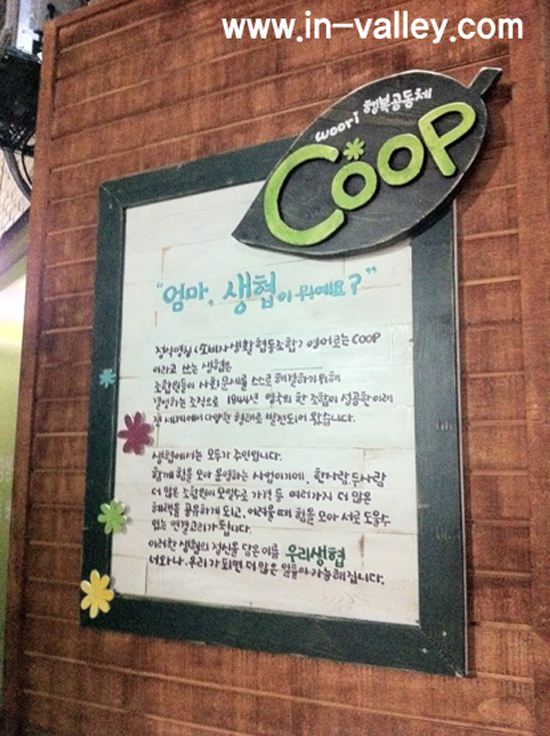 www.in-valley.com
woori 행복공동체
COOP
"엄마, 생협이 뭐예요?"
정식명칭 <소비자 생활 협동조합> 영어로는 COOP
이라고 쓰는 생협은
조합원들이 사회문제를 스스로 해결하기 위해
경영하는 조직으로 1844년 영국의 한 조합이 성공한 이래
전 세계에서 다양한 형태로 발전되어 왔습니다.
생협에서는 모두가 주인입니다.
함께 힘을 모아 운영하는 사업이기에, 한사람, 두사람
더 많은 조합원이 모일수록 가격 등 여러가지 더 많은
혜택을 공유하게 되고, 어려울 때 힘을 모아 서로 도울수
있는 연결고리가 됩니다.
이러한 생협의 정신을 담은 이름 우리생협
너와 나, 우리가 되면 더 많은 일들이 가능해집니다.